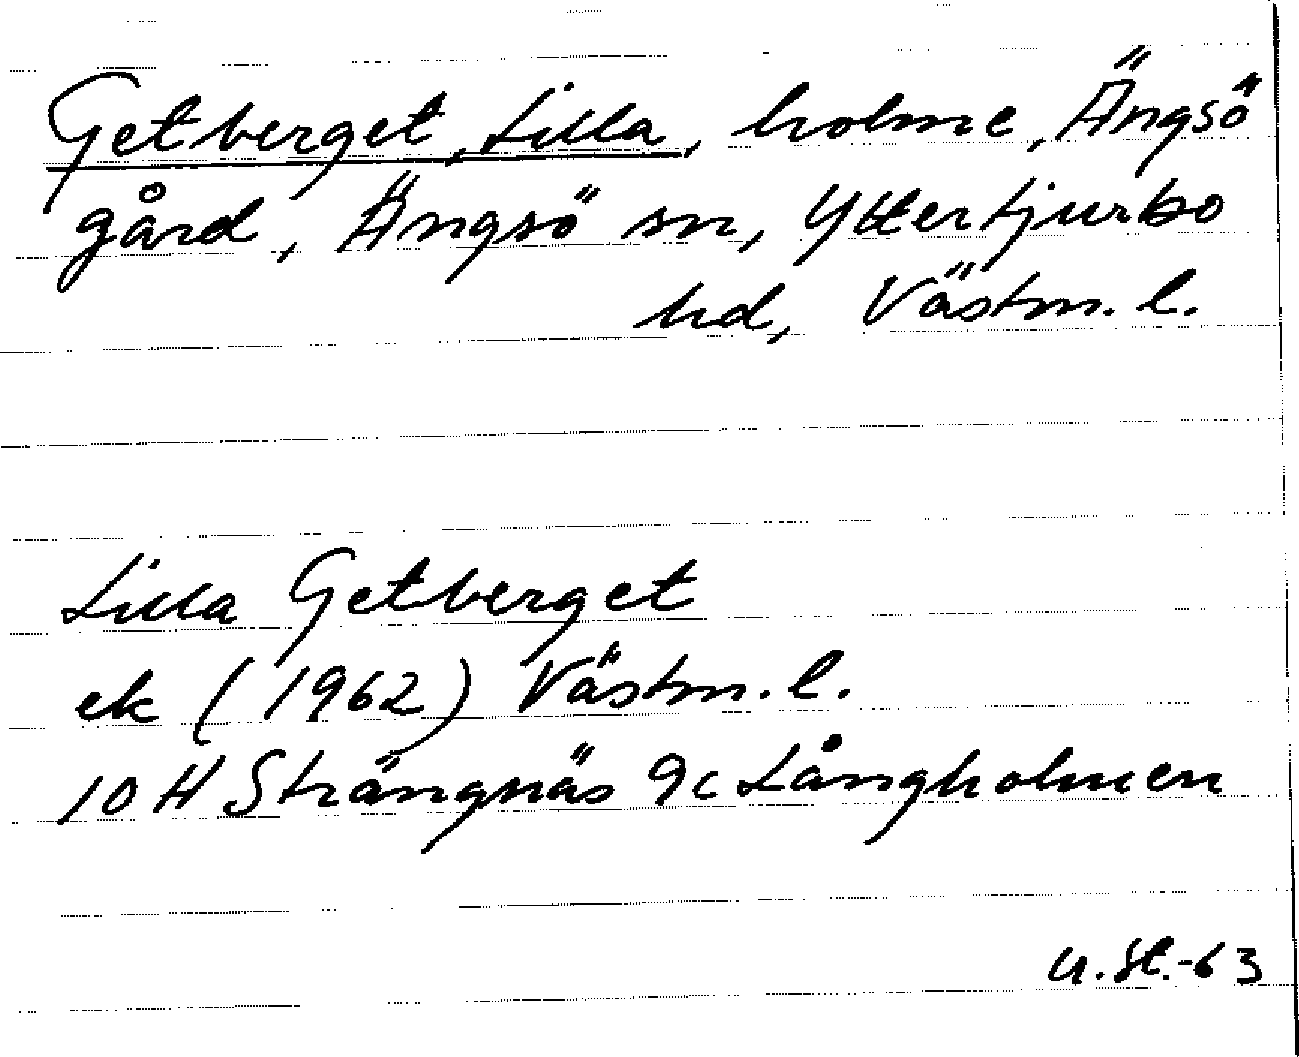 Getberget, Lilla, holme, Ängsö
gård, Ängsö sn, Yttertjurbo
hd, Västm. l.
Lilla Getberget
ek (1962) Västm. l.
10 H Strängnäs 9c Långholmen
U.St.-63